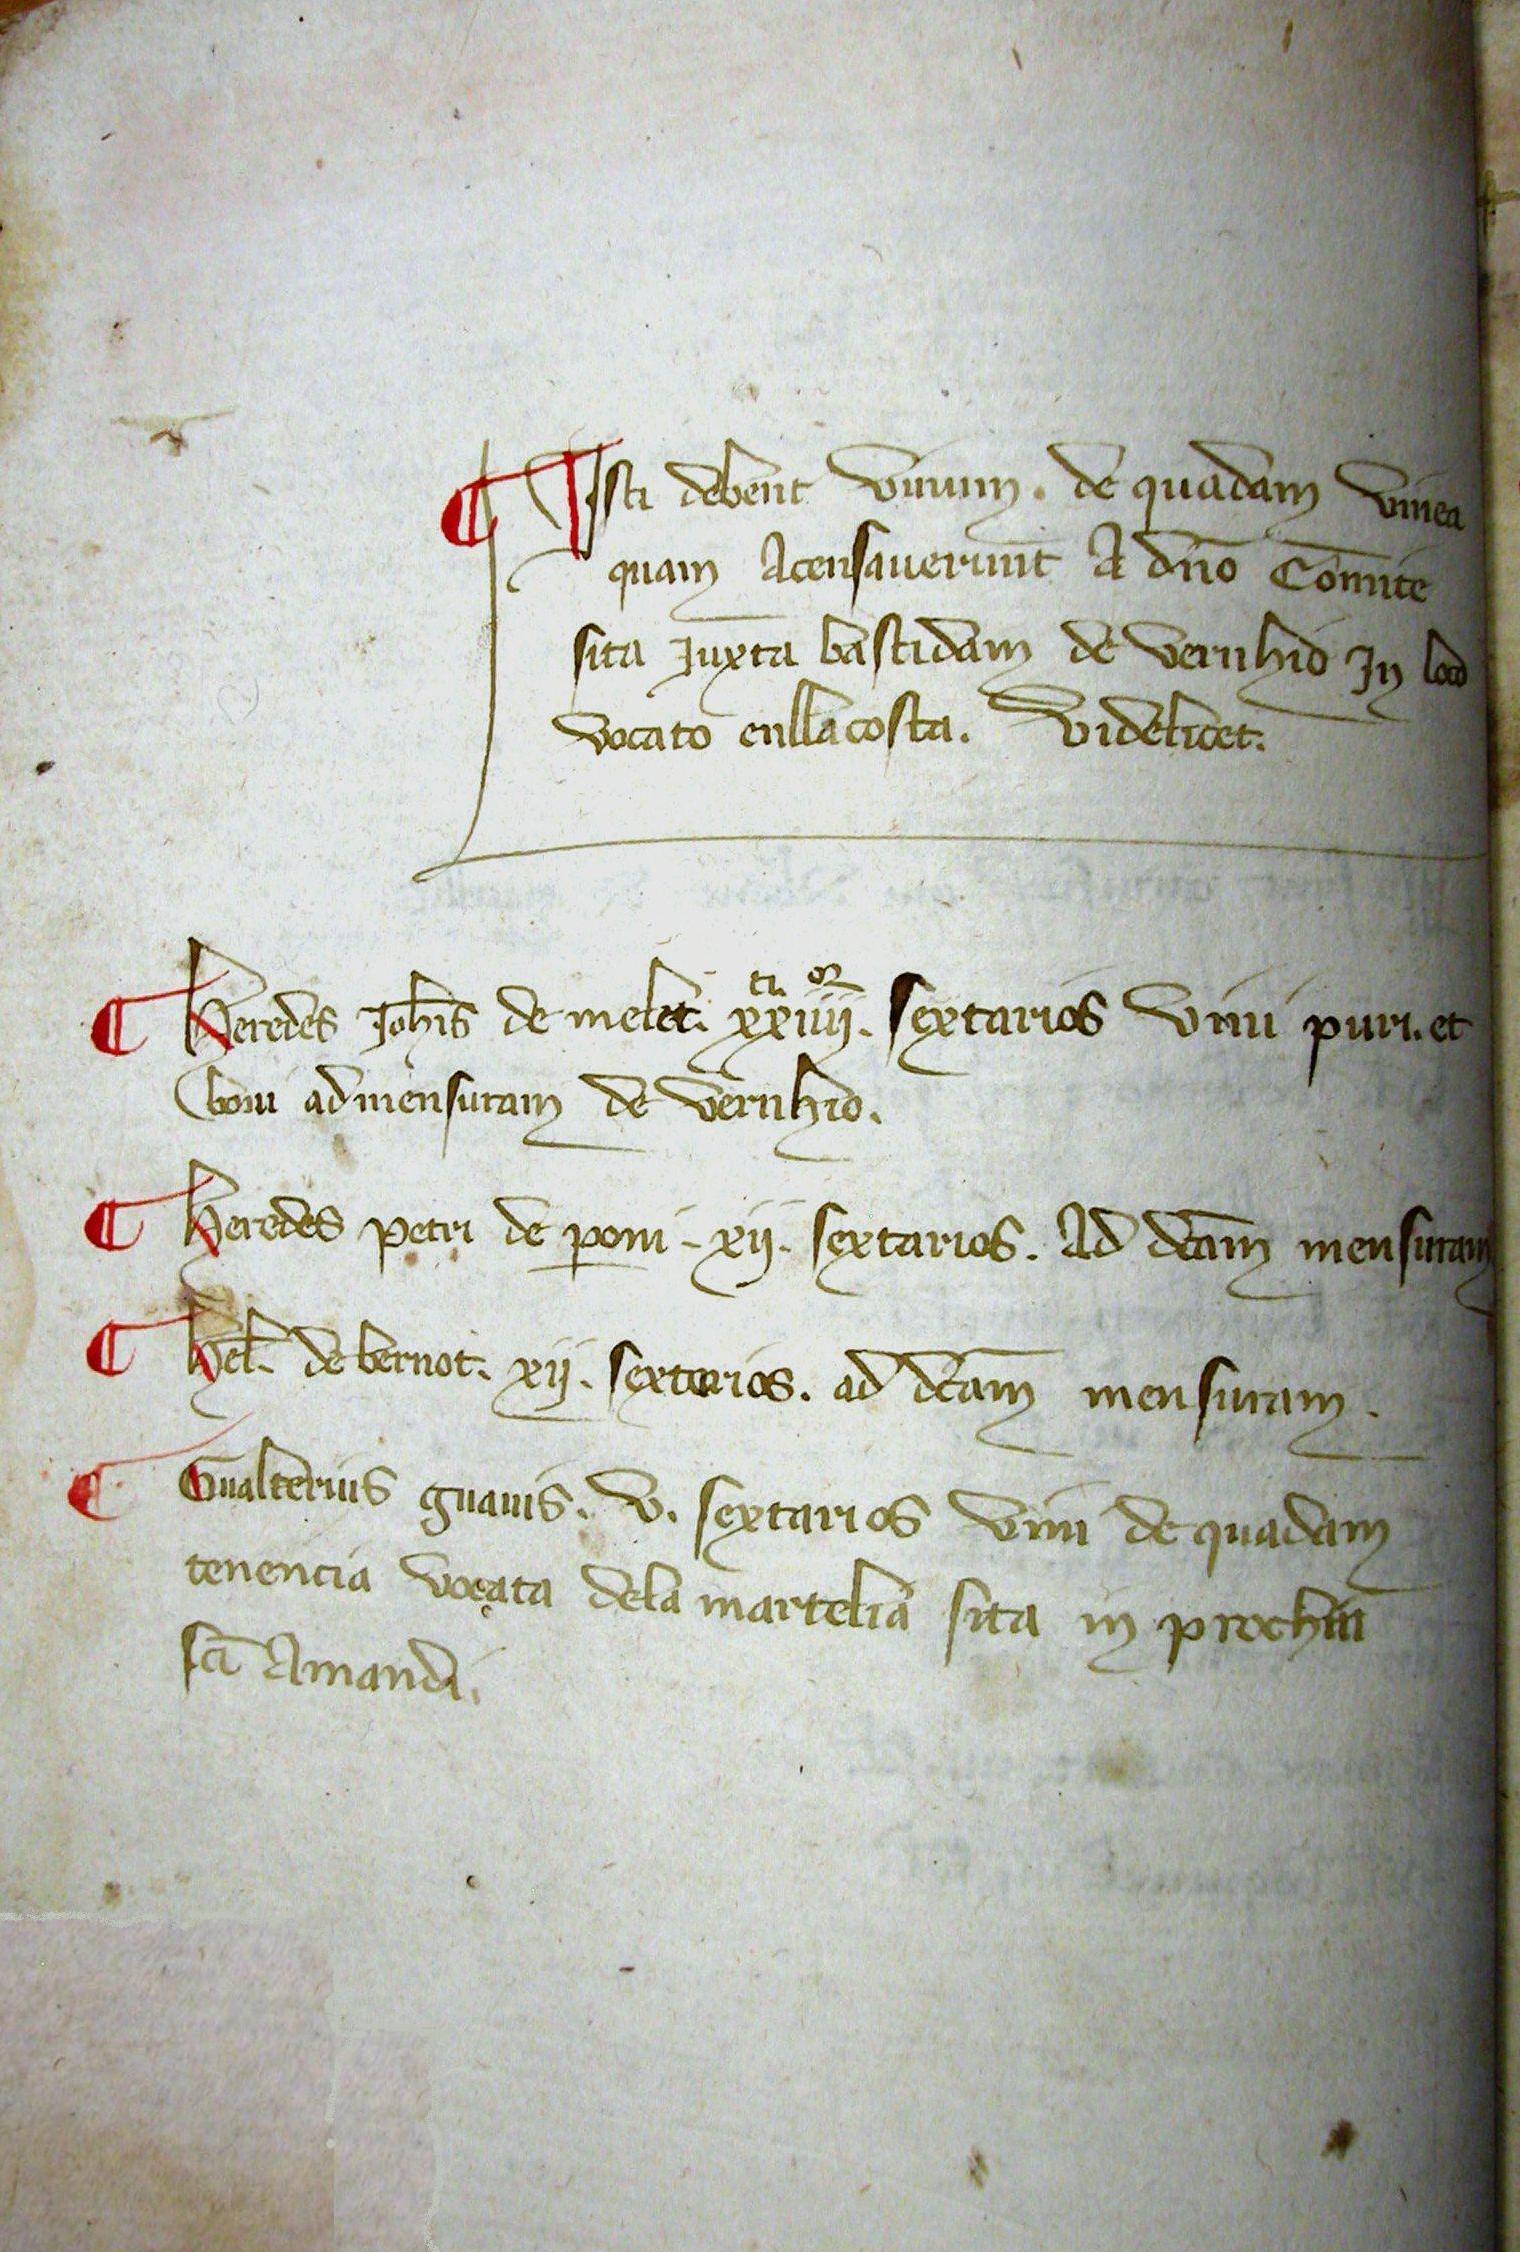 ¶ Isti debent vinum . de quadam vinea
quam Acensauerunt A dño Comite
sita Iuxta bastidam de vernhio In loco
vocato enllacosta . videlicet .
¶ Heredes Joħis de melet . xxiiij . sextarios vini puri . et
boni ad mensuram de vernhio .
¶ Heredes petri de poni . xij . sextarios . Ad dc̃am mensuram
¶ hel̃ . de bernot . xij . sextarios . ad dc̃am mensuram .
¶ Gualterius guauis . v . sextarios vini de quadam
tenencia vocata dela martelia sita in prochia
sc̃i Amandi .